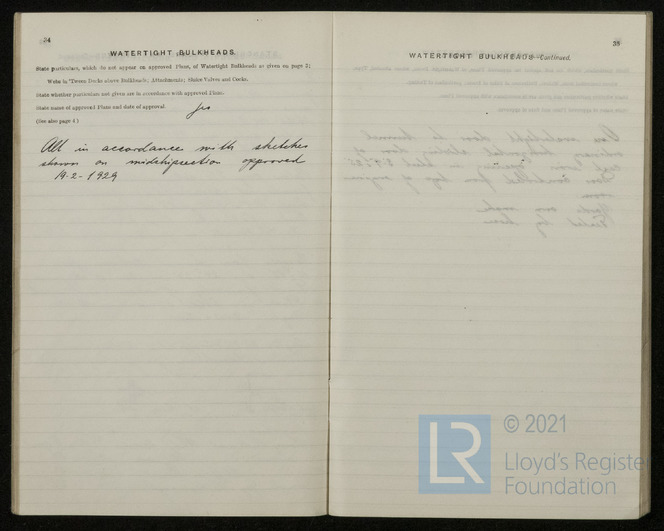 34
WATERTIGHT BULKHEADS.
State particulars, which do not appear on approved Plans, of Watertight Bulkheads as given on page 2;
Webs in 'Tween Decks above Bulkheads; Attachments; Sluice Valves and Cocks.
State whether particulars not given are in accordance with approved Plans.
State name of approved Plan and date of approval.
Yes
(See also page 4)
All in accordance with sketches
shown on midshipsection approved
19-2-1929
35
WATERTIGHT BULKHEADS—Continued.
LR
© 2021
Lloyd's Register
Foundation